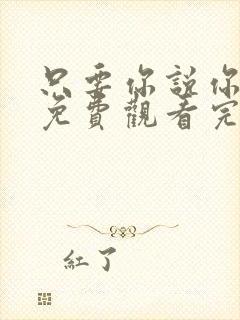 只要你說你
免費觀看完
紅了